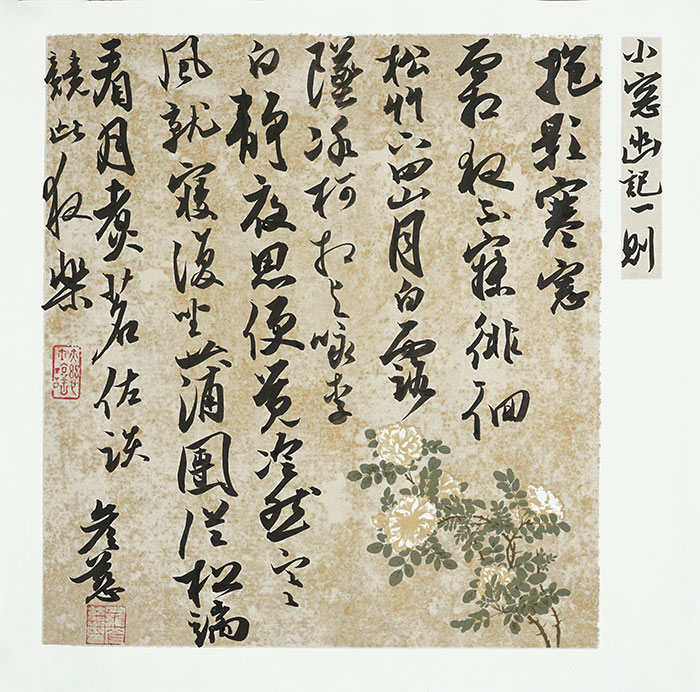 小窓幽記一則
抱影寒窓
霜夜不寐徘徊
松竹下四山月白露
冰柯相与咏李
白静夜思便覓冷然
風就寢復坐蒲團從松端
看月煮茗佐談
競此夜樂